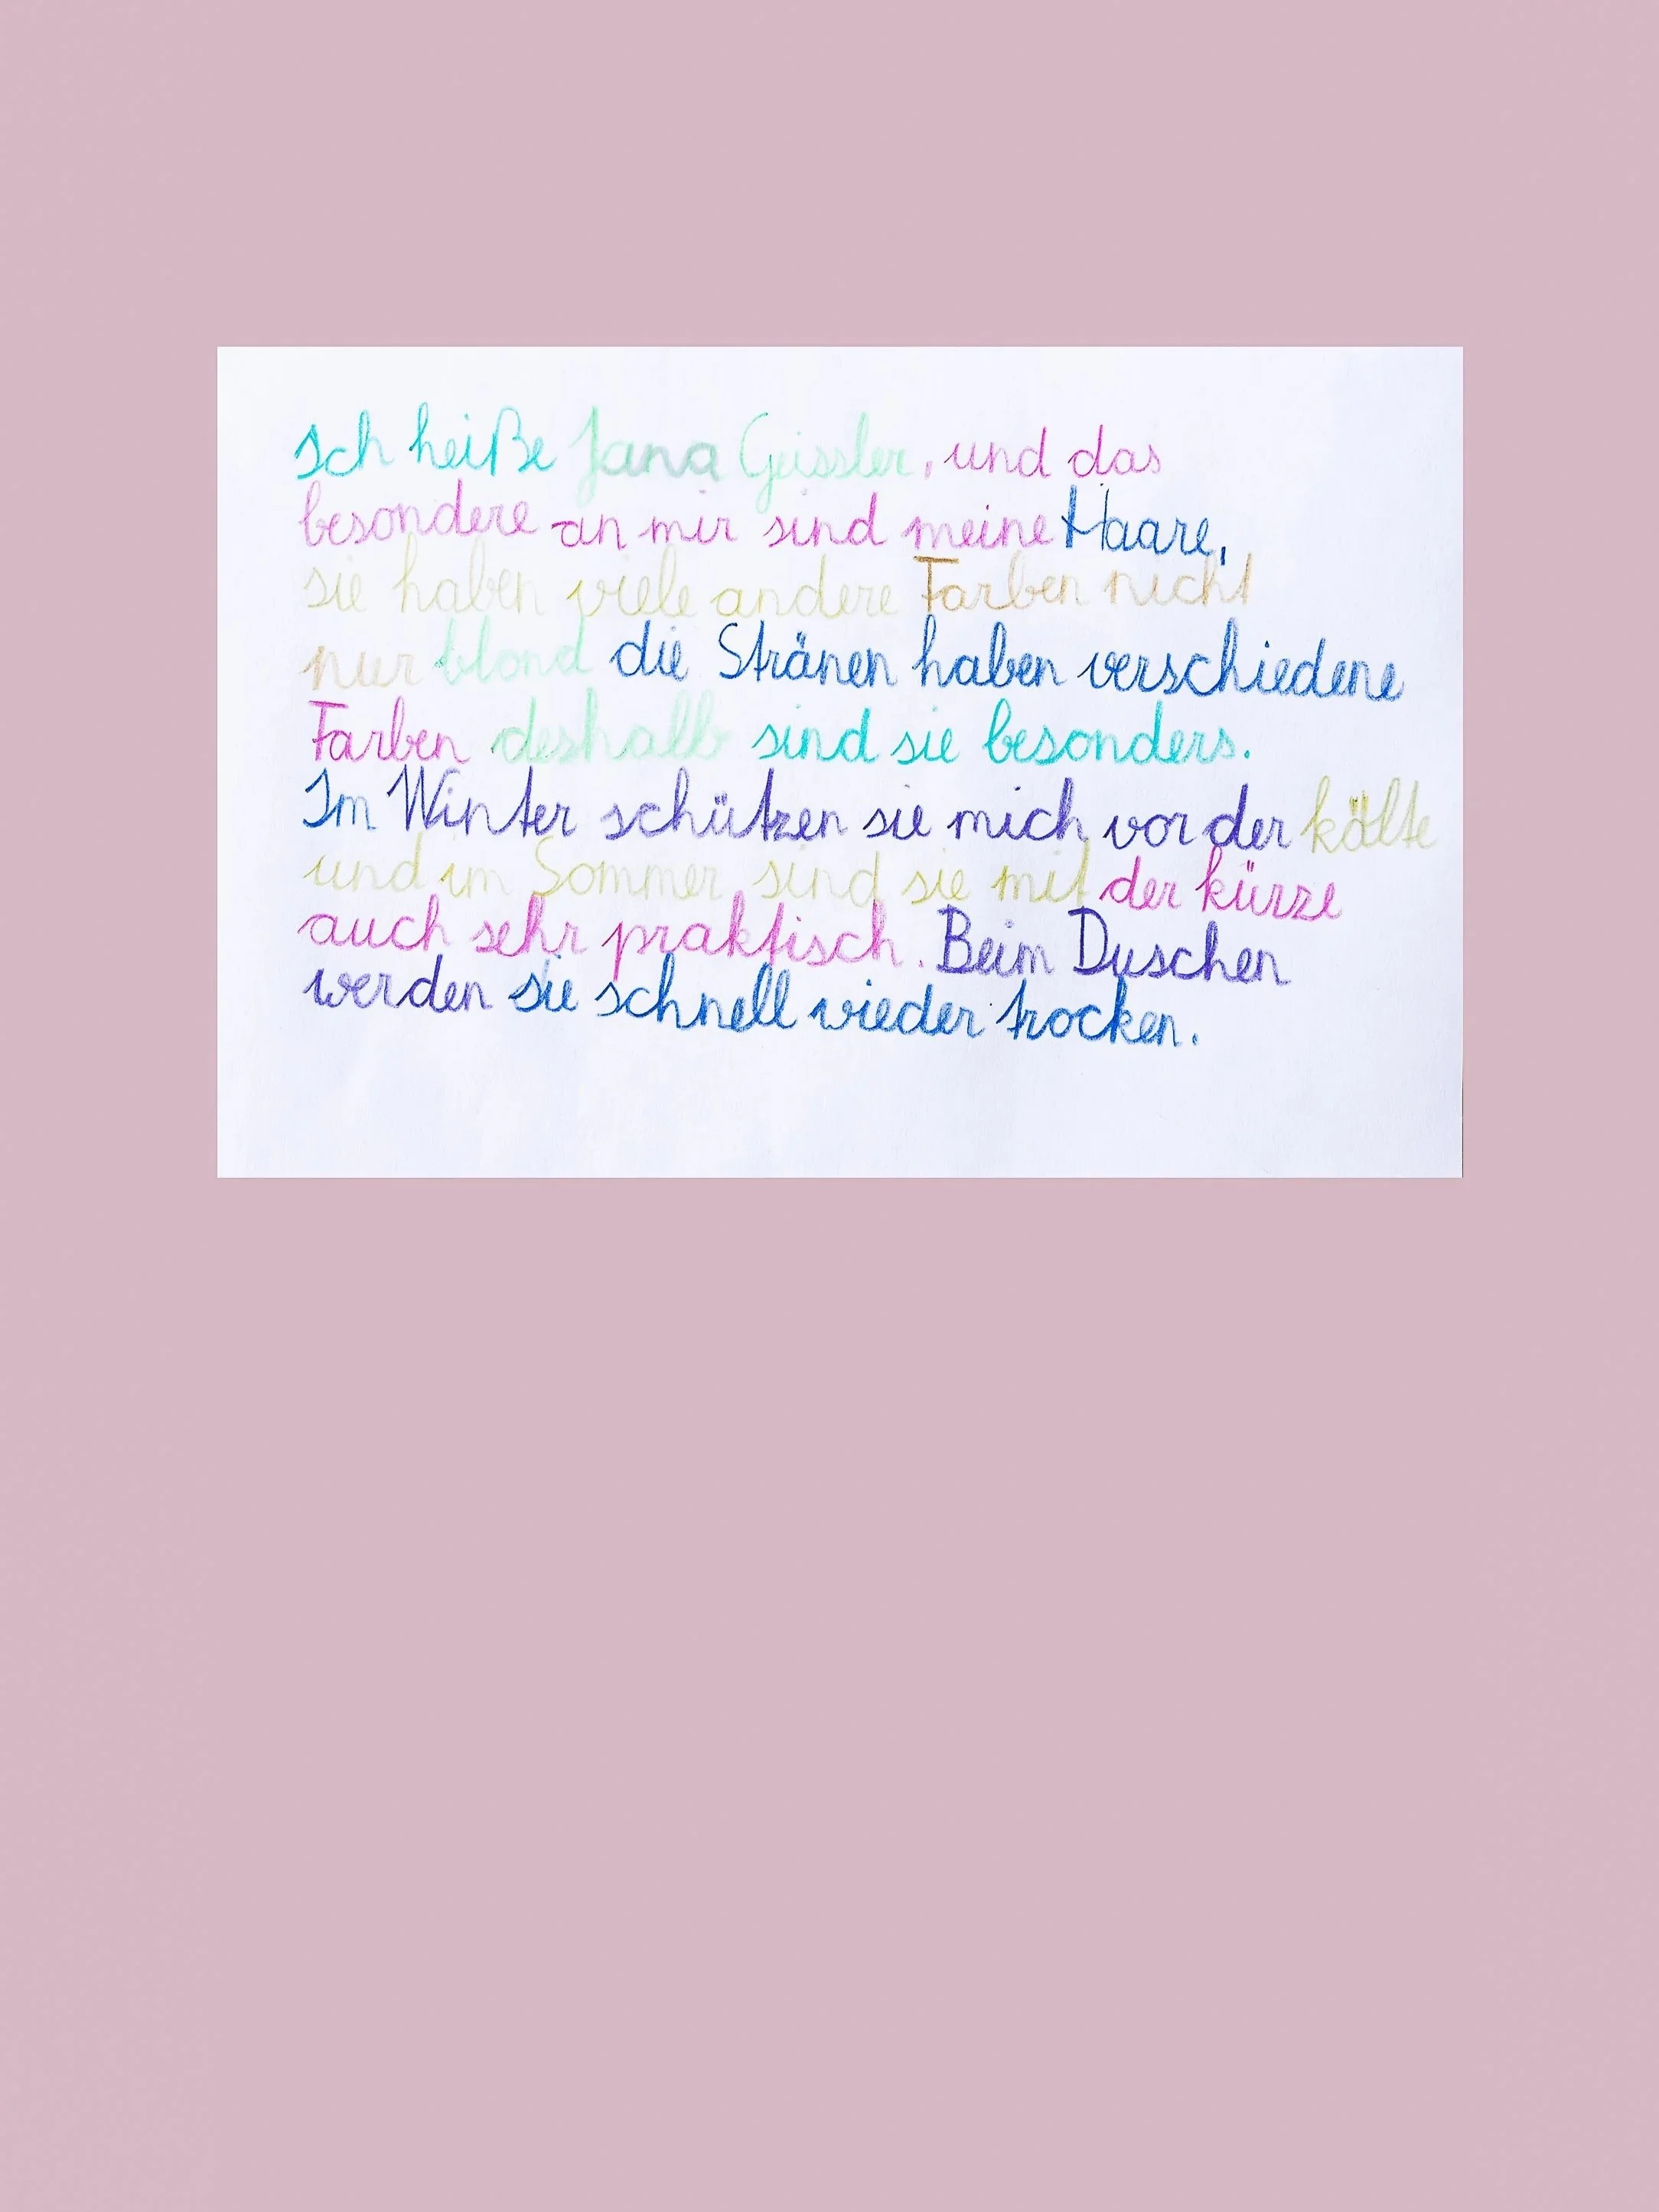 Ich heiße Jana Geissler, und das
besondere an mir sind meine Haare,
sie haben viele andere Farben nicht
nur blond die Stränen haben verschiedene
Farben deshalb sind sie besonders.
Im Winter schützen sie mich vor der kälte
und im Sommer sind sie mit der kürze
auch sehr praktisch. Beim Duschen
werden sie schnell wieder trocken.